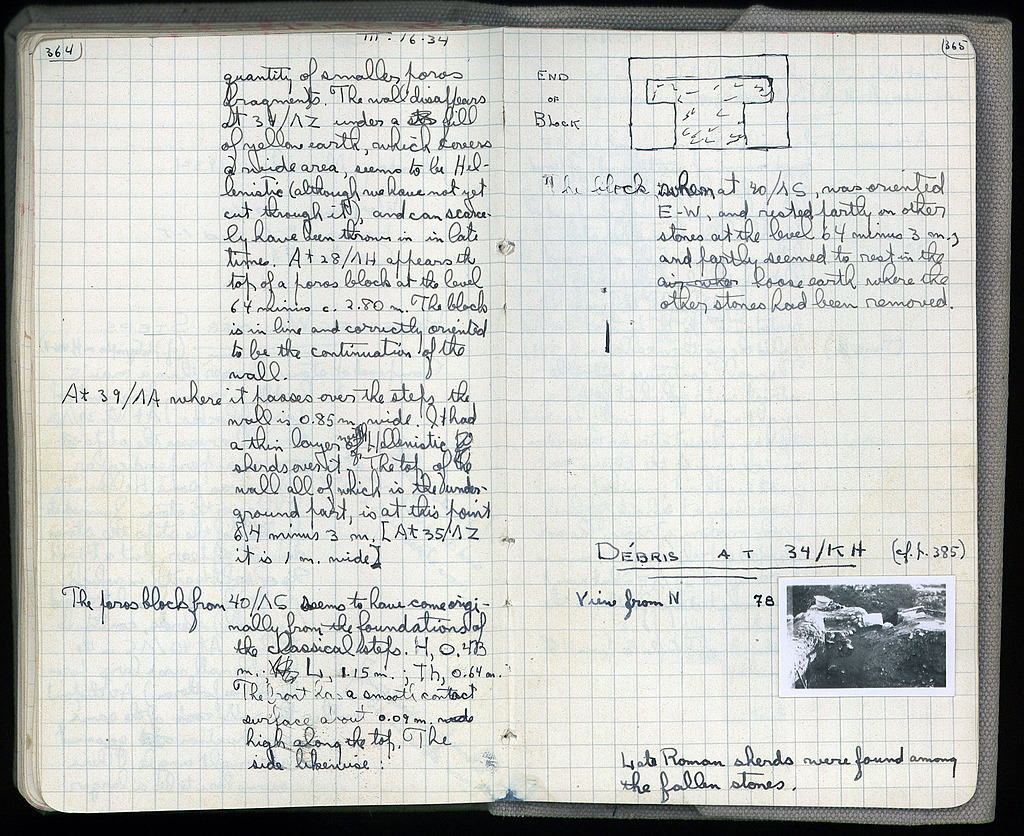 364
III - 16 - 34
quantity of smaller poros
fragments. The wall disappears
at 34/ΛZ under a fill
of yellow earth, which covers
a wide area, seems to be Hel-
lenistic (although we have not yet
cut through it), and can scarce-
ly have been thrown in in late
times. At 28/ΛH appears the
top of a poros block at the level
64 minus c. 2.80 m. The block
is in line and correctly oriented
to be the continuation of the
wall.
At 39/ΛA where it passes over the steps the
wall is 0.85 m. wide. It had
a thin layer with Hellenistic
sherds over it. The top of the
wall all of which is the under-
ground part, is at this point
64 minus 3 m. [At 35/ΛZ
it is 1 m. wide]
The poros block from 40/ΛS seems to have come origi-
nally from the foundations of
the classical steps. H, 0.473
m.; L, 1.15 m.; Th, 0.64 m.
The front has a smooth contact
surface about 0.09 m. wide
high along the top. The
side likewise:
365
END
OF
BLOCK
The block, when at 40/ΛS, was oriented
E-W, and rested partly on other
stones at the level 64 minus 3 m.,
and partly seemed to rest in the
air where loose earth where the
other stones had been removed.
DÉBRIS AT 34/KH (cf. p. 385)
View from N 78
Late Roman sherds were found among
the fallen stones.